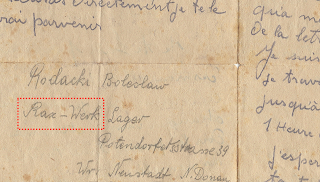 directement je te le
parvenir
Rodacki Bolesław
Rax-Werk Lager
Potendorferstrasse 39
Wr. Neustadt, N. Donau
qu'à m
De la lett
Je suis
je trava
jusqu'à
1 Heure
j'espè